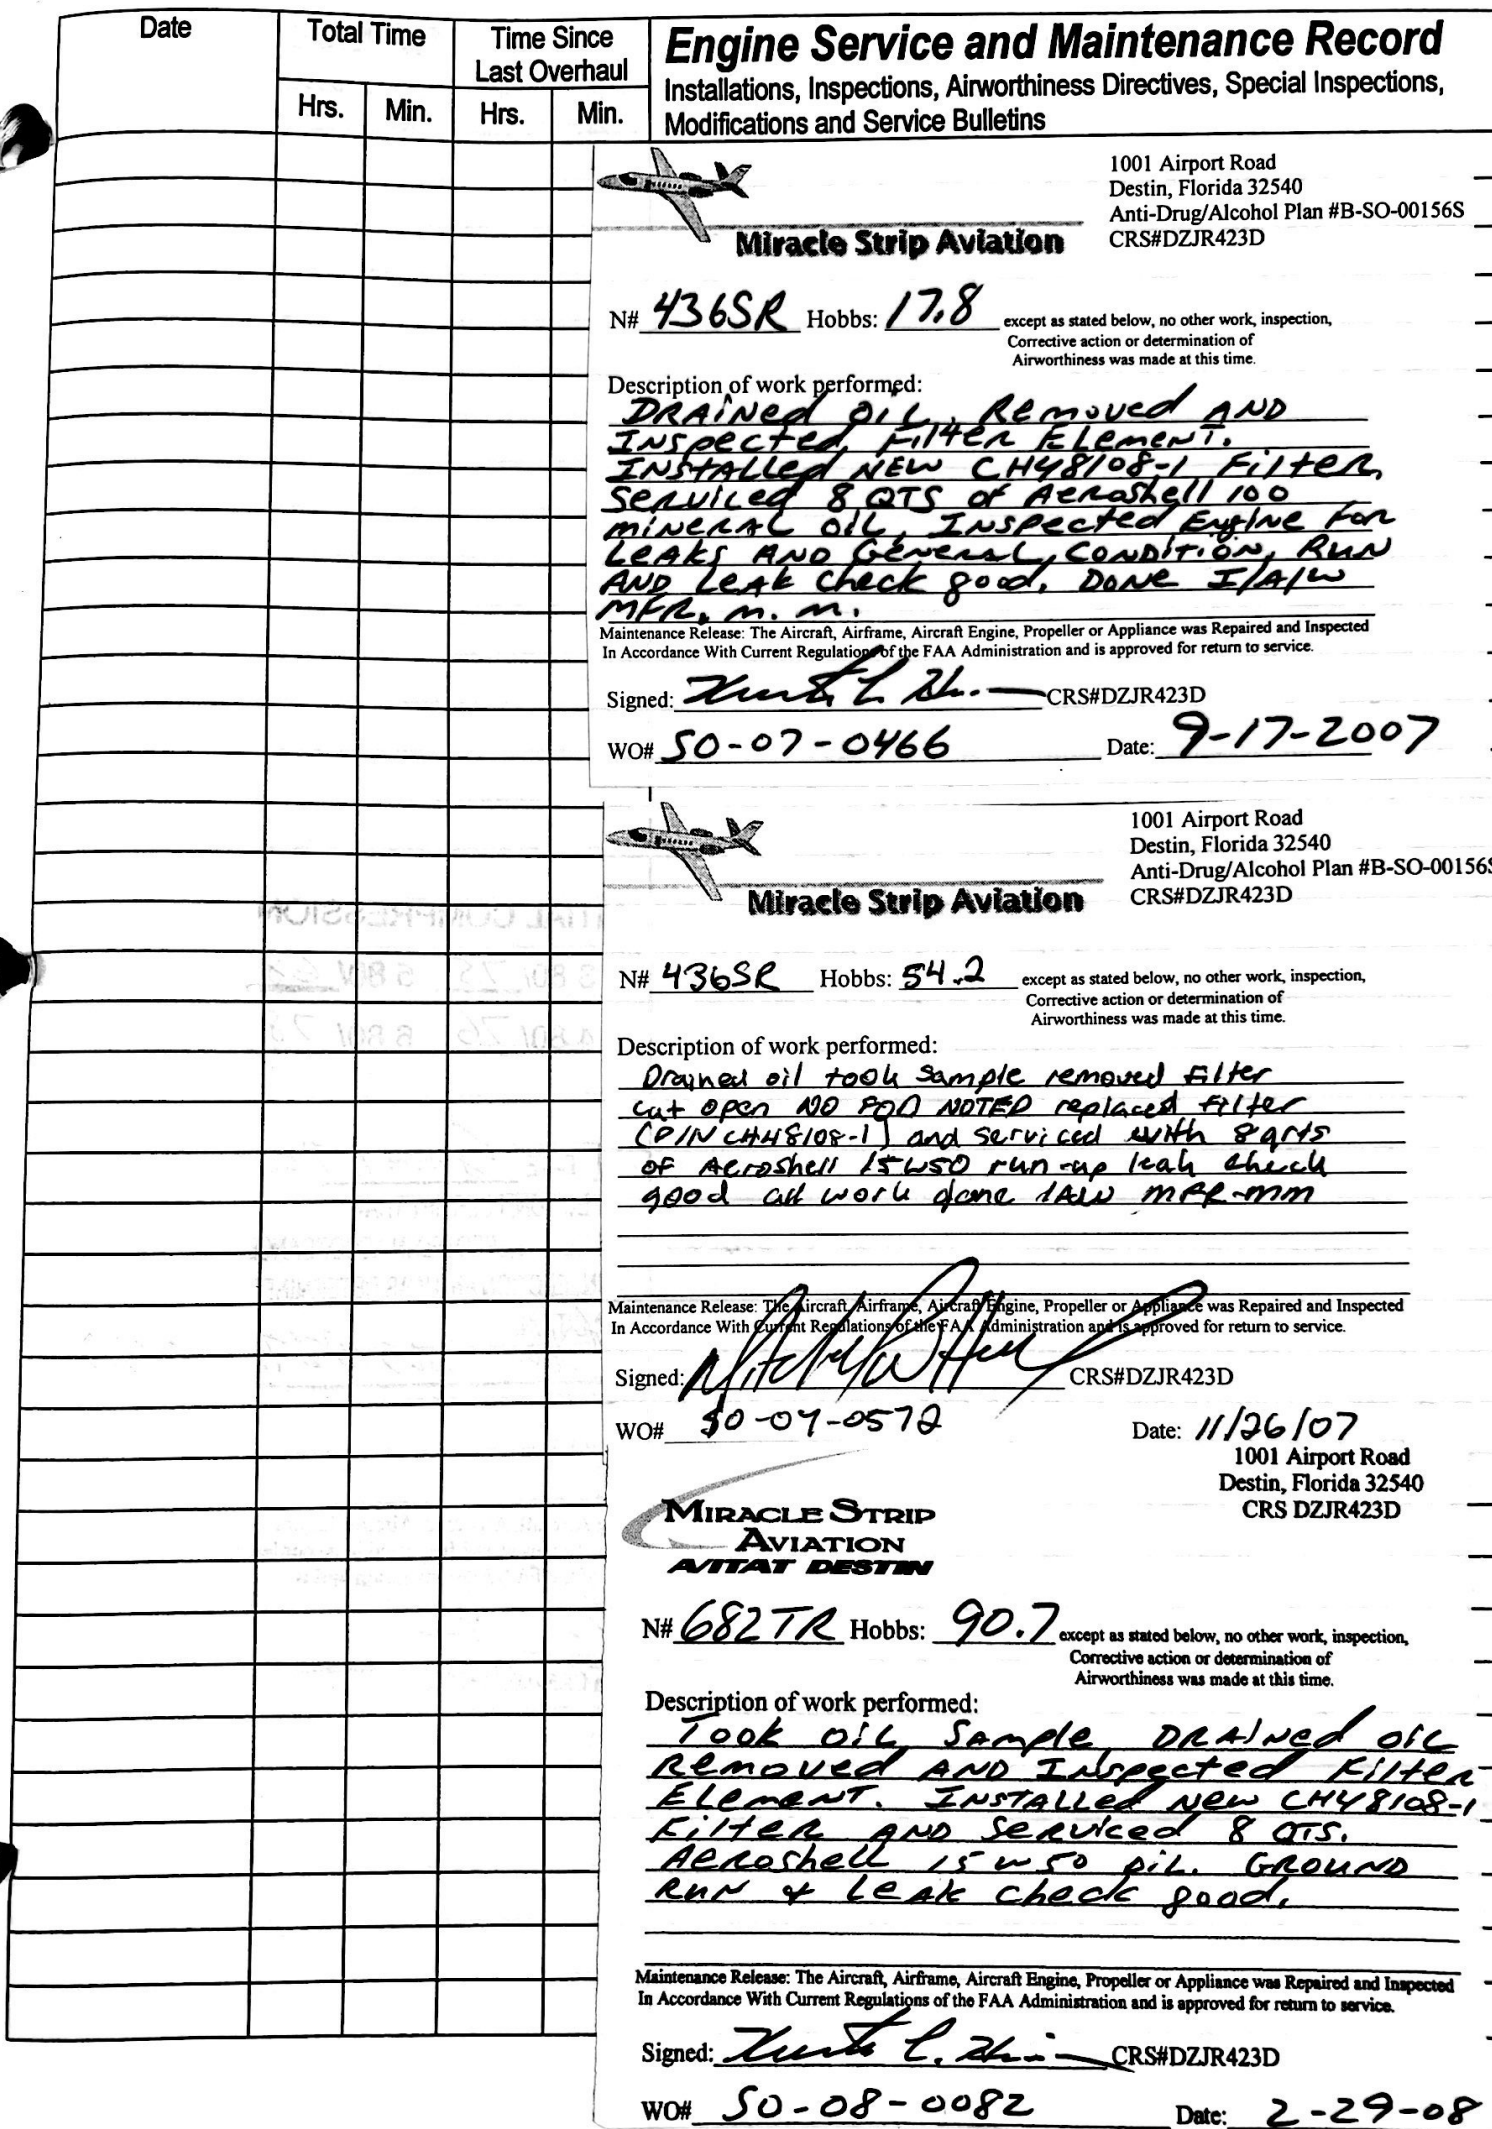 Date
Total Time
Time Since
Last Overhaul
Hrs.
Min.
Hrs.
Min.
Engine Service and Maintenance Record
Installations, Inspections, Airworthiness Directives, Special Inspections,
Modifications and Service Bulletins
1001 Airport Road
Destin, Florida 32540
Anti-Drug/Alcohol Plan #B-SO-00156S
CRS#DZJR423D
Miracle Strip Aviation
N# 436SR Hobbs: 17.8 except as stated below, no other work, inspection,
Corrective action or determination of
Airworthiness was made at this time.
Description of work performed:
DRAINed OIL, Removed AND
INSpected FilteR ELemeNT.
INSTALLed NEW CH48108-1 FilteR,
SeRviced 8 QTS of AeRoshell 100
mineRAL OIL, INSpected Engine FoR
LeAKS AND GeneRAL CONDITION, RUN
AND LeAK Check good. DONE I/A/W
MFR. m. m.
Maintenance Release: The Aircraft, Airframe, Aircraft Engine, Propeller or Appliance was Repaired and Inspected
In Accordance With Current Regulations of the FAA Administration and is approved for return to service.
Signed: CRS#DZJR423D
WO# SO-07-0466 Date: 9-17-2007
1001 Airport Road
Destin, Florida 32540
Anti-Drug/Alcohol Plan #B-SO-00156S
CRS#DZJR423D
Miracle Strip Aviation
N# 436SR Hobbs: 54.2 except as stated below, no other work, inspection,
Corrective action or determination of
Airworthiness was made at this time.
Description of work performed:
Drained oil took sample removed filter
cut open NO FOD NOTED replaced filter
(P/N CH48108-1) and serviced with 8 qrts
of Aeroshell 15W50 run-up leak check
good all work done IAW MFR-MM
Maintenance Release: The Aircraft, Airframe, Aircraft Engine, Propeller or Appliance was Repaired and Inspected
In Accordance With Current Regulations of the FAA Administration and is approved for return to service.
Signed: CRS#DZJR423D
WO# SO-07-0572 Date: 11/26/07
1001 Airport Road
Destin, Florida 32540
CRS DZJR423D
MIRACLE STRIP
AVIATION
AVITAT DESTIN
N# 682TR Hobbs: 90.7 except as stated below, no other work, inspection,
Corrective action or determination of
Airworthiness was made at this time.
Description of work performed:
Took OIL SAmple, DRAINed OIL
Removed AND INSpected FilteR
ELemeNT. INSTALLed New CH48108-1
FilteR AND SeRviced 8 QTS.
AeRoshell 15W50 OIL. GROUND
RUN & LeAK Check good.
Maintenance Release: The Aircraft, Airframe, Aircraft Engine, Propeller or Appliance was Repaired and Inspected
In Accordance With Current Regulations of the FAA Administration and is approved for return to service.
Signed: CRS#DZJR423D
WO# SO-08-0082 Date: 2-29-08